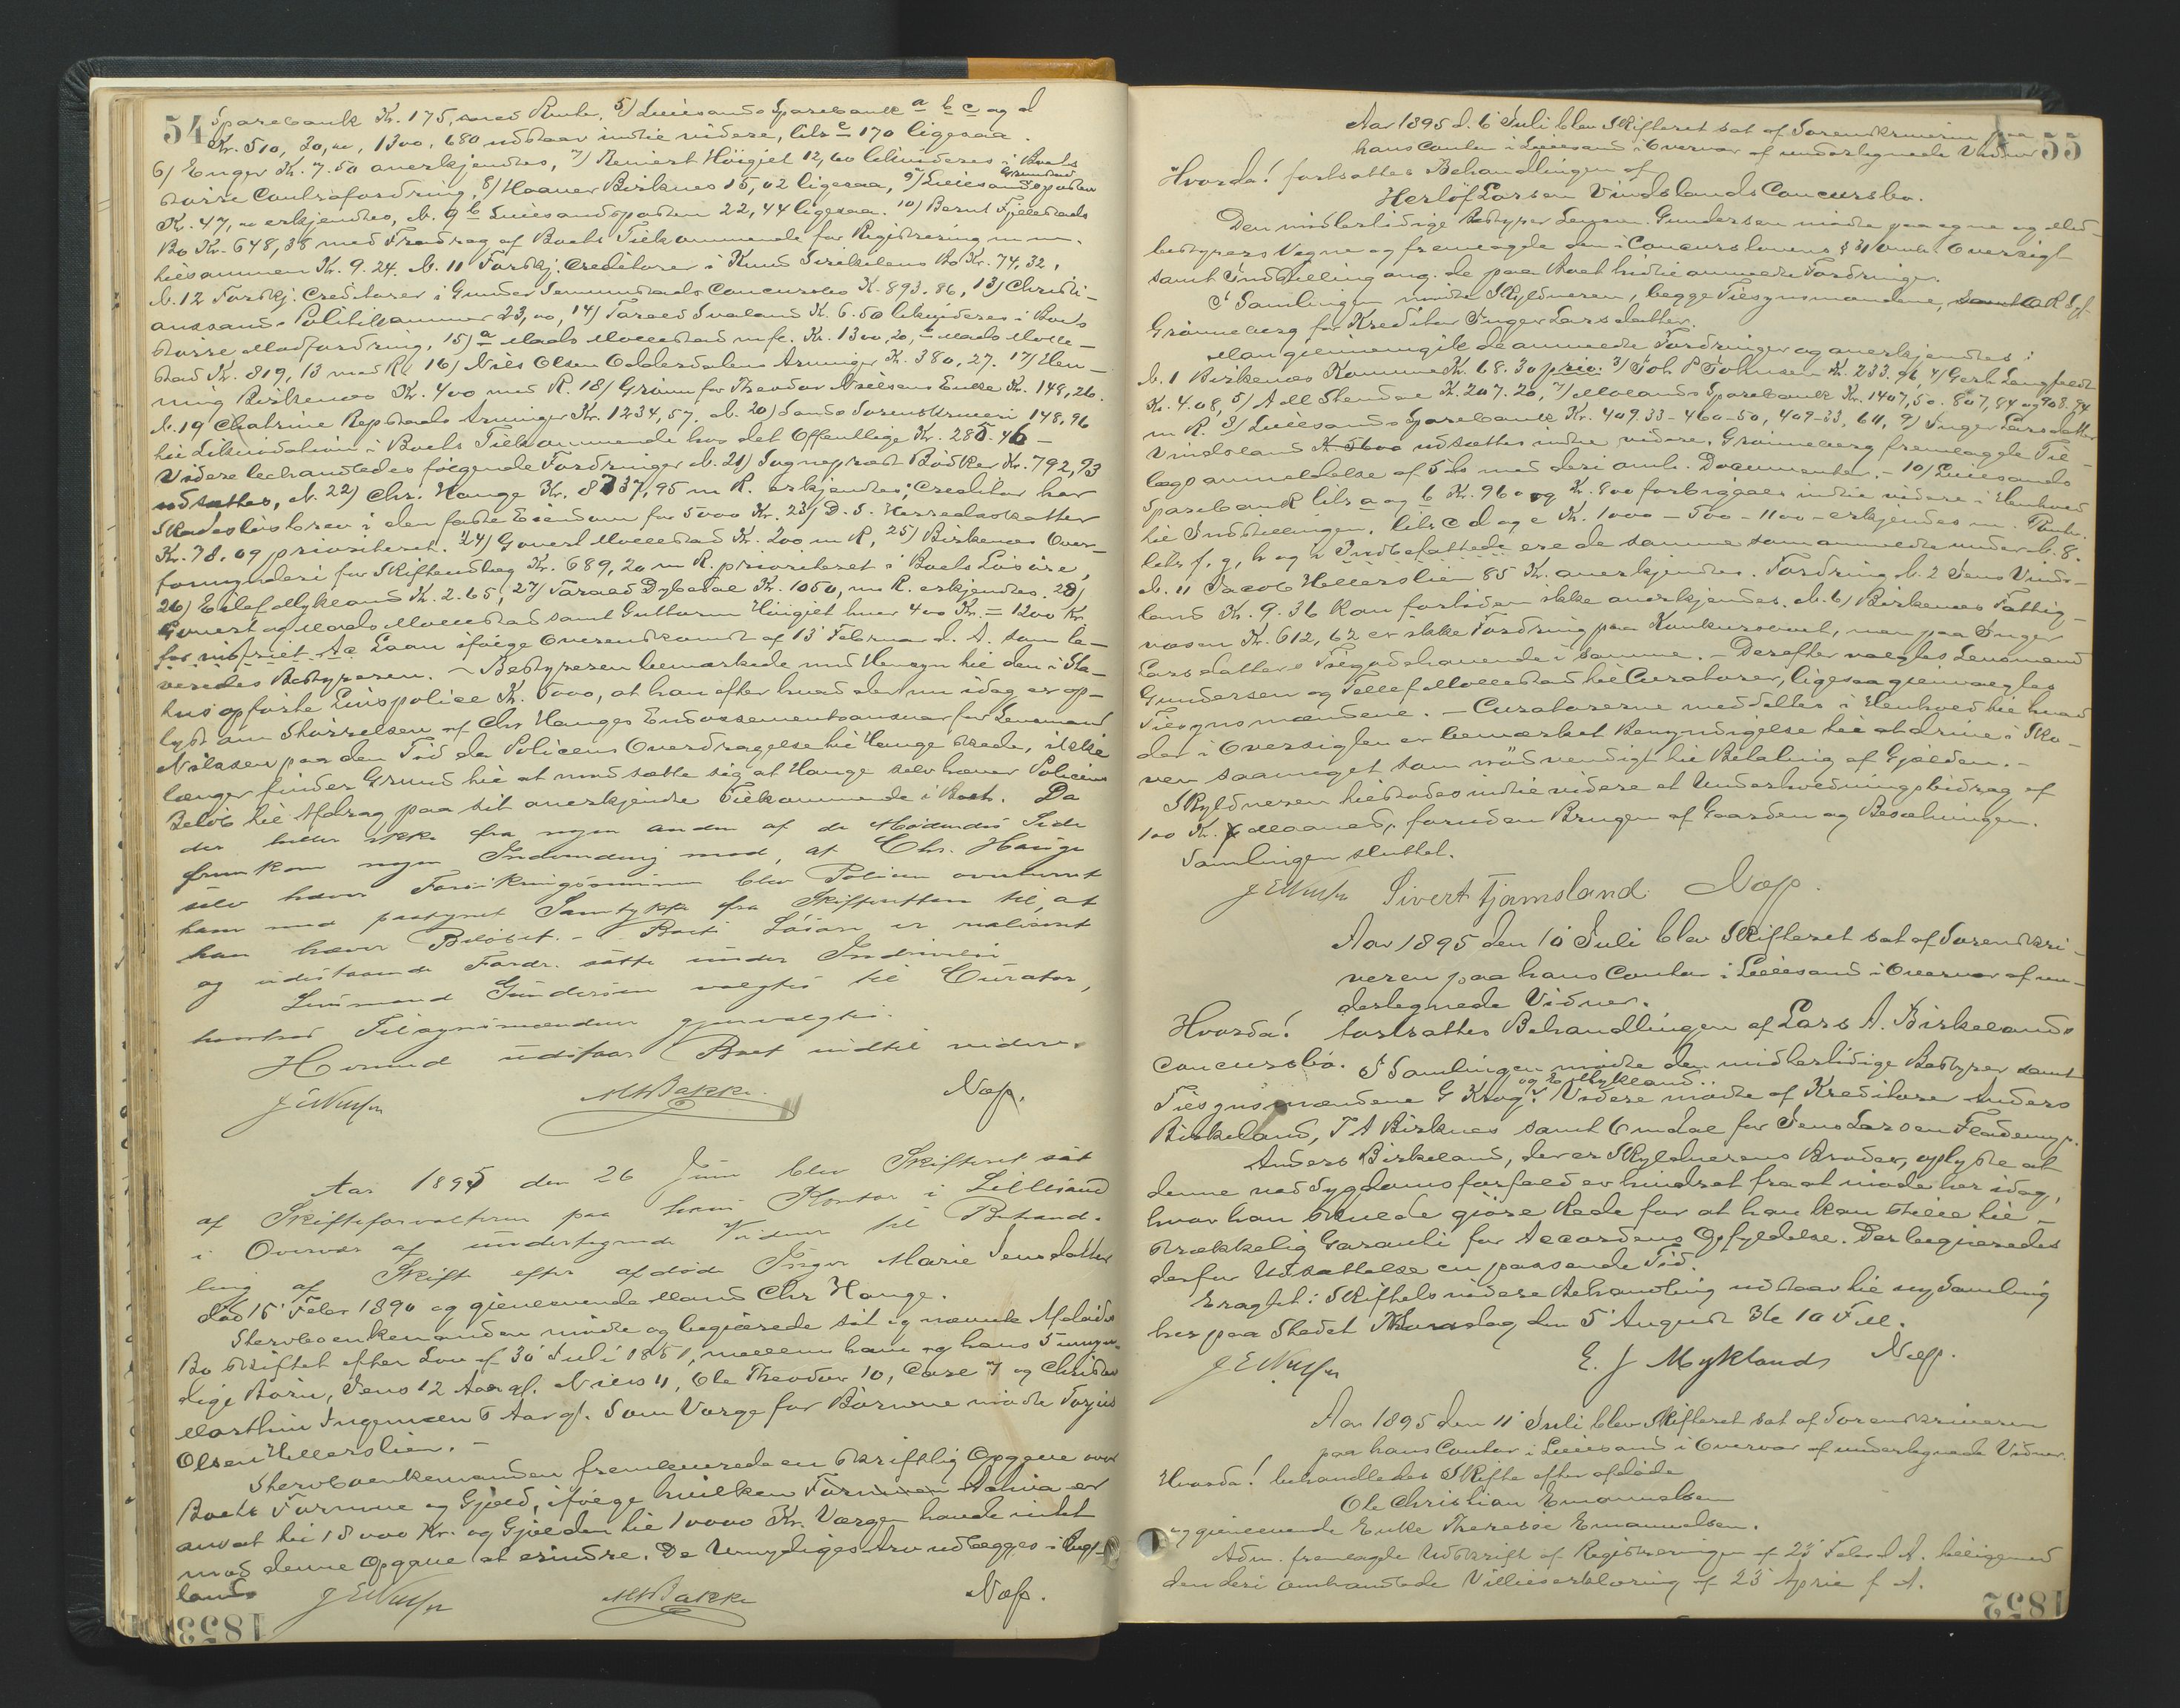 54
Sparebank Kr. 175, med Rente. 5) Lillesands Sparebank a b c og d
Kr. 510, 20,00, 1300, 680 udstaar indtil videre, litr e 170 ligesaa.
6) Enger Kr. 7.50 anerkjendtes, 7) Reniert Höigjet 12,60 likvideres i Boets
större Contrafordring, 8) Haaver Birknes 15,02 ligesaa, 9) Lillesandsposten
Kr. 47,00 erkjendtes, N. 9 b Lillesandsposten 22,44 ligesaa. 10) Bernt Fjelestads
Bo Kr. 648,38 med Fradrag af Boets Tilkommende for Registrering m m.
tilsammen Kr. 9.24. N. 11 Forskj. Creditorer i Knud Bo Kr. 74,32,
N. 12 Forskj. Creditorer i Gunder Concursbo K. 893.86, 13) Christi-
anssands Politikammer 23,00, 14) Tarald Svaland K. 6.50 likvideres i Boets
större Modfordring, 15) a Mads Mollestad m fl. Kr. 1300,20, Mads Molle-
stad Kr. 819,13 med R. 16) Niels Olsen Oddersdalens Arvinger Kr. 380,27. 17) Flen-
ning Birkenes Kr. 400 med R. 18) Grönn for Theodor Nielsens Enke Kr. 148,26.
N. 19 Cathrine Repstads Arvinger Kr. 1234,57. N. 20) Sands Sorenskriveri 148,96
til Likvidation i Boets Tilkommende hos det Offentlige Kr. 285.46 -
Videre behandledes fölgende Fordringer N. 21) Sogneprest Bödker Kr. 792,93
udsattes, N. 22) Chr. Hauge Kr. 8737,95 m R. erkjendtes; Creditor har
Skadeslösbrev i den faste Eiendom for 5000 Kr. 23) D. S. Herredsskatter
Kr. 78.09 prioriteret. 24) Govert Mollestad Kr. 200 m R, 25) Birkenes Over-
formynderi for Skiftendlæg Kr. 689,20 m R. prioriteret i Boets Lösöre,
26) Eilef Mykland K. 2.65, 27) Tarald Dybedal Kr. 1050, m R. erkjendtes. 28)
Govert og Mads Mollestad samt Guttorm Höigjet hver 400 Kr. = 1200 Kr.
for Laan ifölge Overenskomst af 13 Februar d. A. som le-
veredes Bestyreren. - Bestyreren bemærkede med Hensyn til den i Sta-
tus opförte Livspolice Kr. 5000, at han efter hvad der nu idag er op-
lyst om Störrelsen af Chr Hauges Endossementsansvar for Lensmand
Nilssen paa den Tid da Policens Overdragelse til Hauge skede, ikke
længer finder Grund til at modsætte sig at Hauge selv hæver Policens
Belöb til Afdrag paa sit anerkjendte Tilkommende i Boet. Da
der heller ikke fra nogen anden af de Mödendes Side
fremkom nogen Indvending mod, at Chr. Hauge
selv hæver Forsikringssummen blev Policen overleveret
ham med paategnet Samtykke fra Skifteretten til, at
han hæver Belöbet. - Boets Lösöre er realiseret
og udestaaende Fordr. satte under Inddriveri
Lensmand Gundersen valgtes til Curator,
hvorhos Tilsynsmændene gjenvalgtes.
Hermed udstaar Boet indtil videre.
MBakke Næss.
Aar 1895 den 26 Juni blev Skifteret sat
af Skifteforvalteren paa hans Kontor i Lillesand
i Overvær af undertegnede Vidner til Behand-
ling af Skifte efter afdöde Inger Marie Jensdatter
död 15 Febr 1890 og gjenlevende Mand Chr Hauge.
Stervboenkemanden mödte og begjærede sit og nævnte Afdödes
Bo skiftet efter Lov af 30 Juli 1851, mellem ham og hans 5 umyn-
dige Börn, Jens 12 Aar gl. Niels 11, Ole Theodor 10, Carl 7 og Christian
Marthin Ingemann 6 Aar gl. Som Værge for Börnene mödte Torjus
Olsen Hellerslien. -
Stervboenkemanden fremleverede en skriftlig Opgave over
Boets Formue og Gjæld, ifölge hvilken Activa er
ansat til 18000 Kr. og Gjælden til 10000 Kr. Værgen havde intet
mod denne Opgave at erindre. De Umyndiges Arv udlægges i Lugt-
lands
MBakke Næss.
1853
55
Aar 1895 d. 6 Juli blev Skifteret sat af Sorenskriveren paa
hans Contor i Lillesand i Overvær af undertegnede Vidner
Hvorda! fortsattes Behandlingen af
Herlöf Larsen Vindslands Concursbo.
Den midlertidige Bestyrer Lensm. Gundersen mödte paa egne og Med-
bestyrers Vegne og fremlagde den i Concurslovens § 31 omh. Oversigt
samt Indstilling ang. de paa Boet hidtil anmeldte Fordringer.
I Samlingen mödte Skyldneren, begge Tilsynsmændene, samt O R Sgf.
Grönneberg for Kreditor Inger Larsdatter.
Man gjennemgik de anmeldte Fordringer og anerkjendtes:
N. 1 Birkenes Kommune Kr. 68.30 prio. 3) Joh P Johnsen Kr. 233.96, 4) Gerh Langfeldt
Kr. 4.08, 5) A M Stendal K. 207.20, 7) Mollands Sparebank Kr. 1407,50. 807,84 og 908.94
m R. 8) Lillesands Sparebank Kr. 409.33-460-50, 409-33, 611, 9) Inger Larsdatter
Vindsland K. 5600 udsættes indtil videre. Grönneberg fremlagde Til-
lægsanmeldelse af 5 ds med deri omh. Documenter. - 10) Lillesands
Sparebank litr a og b Kr. 960 og Kr. 800 forbigaaes indtil videre i Henhold
til Indstillingen, litr c d og e Kr. 1000 - 500 - 1100 - erkjendes m. Rente.
litr f, g, h og i Indbefattede ere de samme som anmeldte under N. 8.
N. 11 Jacob Hellerslien 85 Kr. anerkjendtes. Fordring N. 2 Jens Vinds-
land Kr. 9.36 kan fortiden ikke anerkjendes. N. 6) Birkenes Fattig-
væsen Kr. 612,62 er ikke Fordring paa Konkursboet, men paa Inger
Larsdatters Tilgodehavende i samme. - Derefter valgtes Lensmand
Gundersen og Tellef Mollestad til Curatorer, ligesaa gjenvalgtes
Tilsynsmændene. - Curatorerne meddeltes i Henhold til hvad
der i Oversigten er bemærket Bemyndigelse til at drive i Sko-
ven saameget som nödvendigt til Betaling af Gjælden. -
Skyldneren tilstodes indtil videre et Underholdningsbidrag af
100 Kr. Maaned, foruden Brugen af Gaarden og Besætningen.
Samlingen sluttet.
Sivert Tjomsland Næss.
Aar 1895 den 10 Juli blev Skifteret sat af Sorenskri-
veren paa hans Contor i Lillesand i Overvær af un-
dertegnede Vidner.
Hvorda! fortsattes Behandlingen af Lars A. Birkelands
Concursbo. I Samlingen mödte den midlertidige Bestyrer samt
Tilsynsmændene G Krog og E Mykland. Videre mödte af Kreditorer Anders
Birkeland, T A Birknes samt Omdal for Jens Larsen Fladeng.
Anders Birkeland, der er Skyldnerens Broder, oplyste at
denne ved Sygdomsforfald er hindret fra at möde her idag,
hvor han skulde gjöre Rede for at han kan stille til-
strækkelig Garanti for Accordens Opfyldelse. Der begjæredes
derfor Udsættelse en passende Tid.
Eragtet: Skiftets videre Behandling udstaar til ny Samling
her paa Stedet Mandag den 5 August Kl 10 F M.
E. J Myklands Næss.
Aar 1895 den 11 Juli blev Skifteret sat af Sorenskriveren
paa hans Contor i Lillesand i Overvær af undertegnede Vidner.
Hvorda! behandledes Skifte efter afdöde
Ole Christian Emanuelsen
og gjenlevende Enke Theresie Emanuelsen.
Adm. fremlagde Udskrift af Registreringen af 23 Febr d A. tilligemed
den deri omhandlede Villieserklæring af 25 April f A.
1852